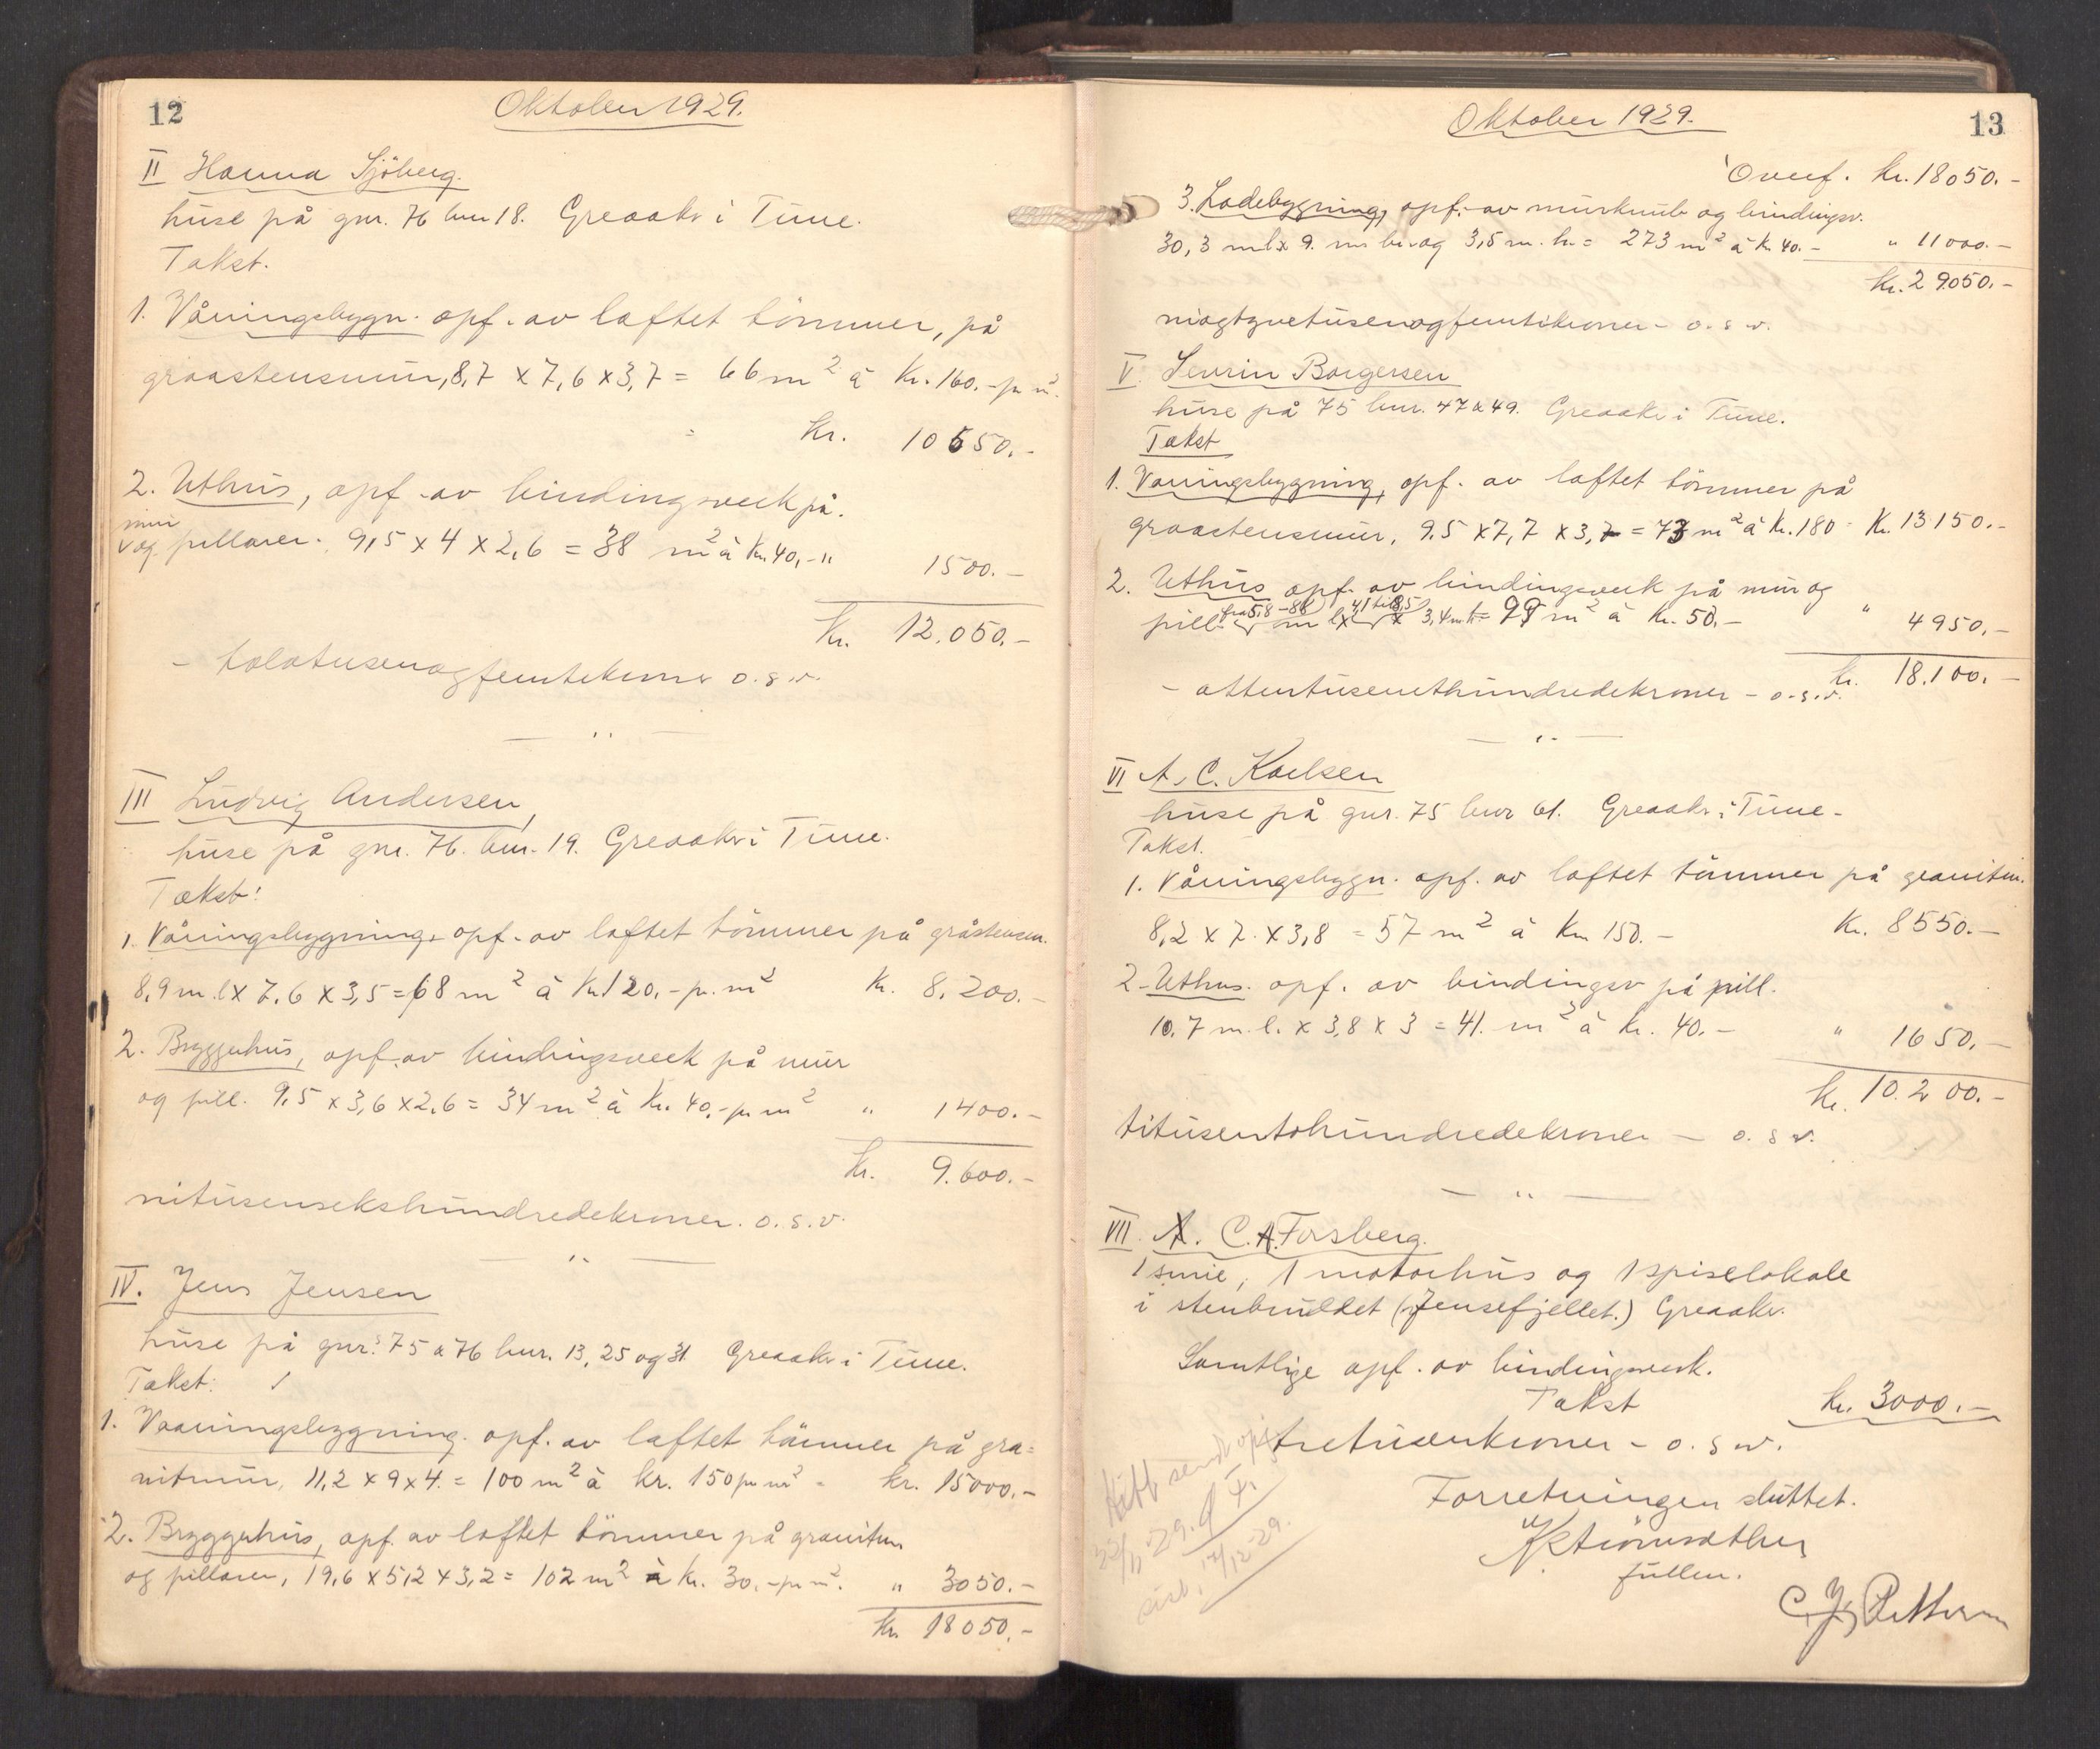 12
Oktober 1929.
II Hanna Sjöberg.
huse på gnr. 76 bnr 18. Greaaker i Tune.
Takst.
1. Våningsbygn. opf. av laftet tömmer, på
graastensmur, 8,7 x 7,6 x 3,7 = 66 m² à Kr. 160.- pr m².
= Kr. 10550.-
2. Uthus, opf. av bindingsverk på
mur
og pillarer. 9,5 x 4 x 2,6 = 38 m² à Kr. 40,- " 1500.-
Kr. 12.050.-
- tolvtusenogfemtikroner o.s.v.
- " -
III Ludvig Andersen,
huse på gnr. 76. bnr. 19. Greaaker i Tune.
Takst:
1. Våningsbygning, opf. av laftet tömmer på gråstensm.
8,9 m. l x 7,6 x 3,5 = 68 m² à Kr 120.- pr. m² Kr. 8.200.-
2. Bryggerhus, opf. av bindingsverk på mur
og pill. 9,5 x 3,6 x 2,6 = 34 m² à Kr. 40.- pr m² " 1400.-
Kr. 9.600.-
nitusensekshundredekroner. o.s.v.
- " -
IV. Jens Jensen
huse på gnr. 75 & 76 bnr. 13, 25 og 31 Greaaker i Tune.
Takst:
1. Vaaningsbygning. opf. av laftet tömmer på gra=
nitmur, 11,2 x 9 x 4. = 100 m² à kr. 150 pr m² - kr. 15000.-
2. Bryggerhus, opf. av laftet tömmer på granitm
og pillarer, 19,6 x 5,2 x 3,2 = 102 m² à Kr. 30.- pr m². " 3050.-
Kr. 18050.-
Oktober 1929.
13
Overf. Kr. 18050.-
3. Ladebygning, opf. av murkub og bindingsv.
30,3 m l x 9. m br. og 3,5 m. h. = 273 m² à Kr. 40.- " 11000.-
Kr. 29050.-
niogtyvetusenogfemtikroner - o.s.v.
V. Sevrin Borgersen
huse på 75 bnr. 47 & 49. Greaaker i Tune.
Takst
1. Vaningsbygning, opf. av laftet tömmer på
graastensmur, 9,5 x 7,7 x 3,7 = 73 m² à Kr. 180 - Kr. 13150.-
2. Uthus opf. av bindingsverk på mur og
fra 5,8 - 8,8 4,1 til 8,5
pill. m l x x 3,4 m h = 99 m² à Kr. 50.- " 4950.-
Kr. 18.100.-
- attentusenethundredekroner - o.s.v.
- " -
VI A. C. Karlsen
huse på gnr. 75 bnr 61. Greaaker i Tune.
Takst.
1. Våningsbygn. opf. av laftet tömmer på granitm.
8,2 x 7. x 3,8 = 57 m² à Kr 150.- Kr. 8550.-
2. Uthus. opf. av bindingsv på pill.
10,7 m. l. x 3,8 x 3 = 41. m² à Kr. 40.- " 1650.-
Kr. 10.200.-
titusentohundredekroner - o.s.v.
- " -
VII. A. C. A. Forsberg.
1 smie, 1 motorhus og 1 spiselokale
i stenbruddet (Jensefjellet.) Greaaker.
Samtlige opf. av bindingsverk.
Takst Kr. 3000.-
tretusenkroner - o.s.v.
Forretningen sluttet.
fullm.
22/11 29.
17/12-29.